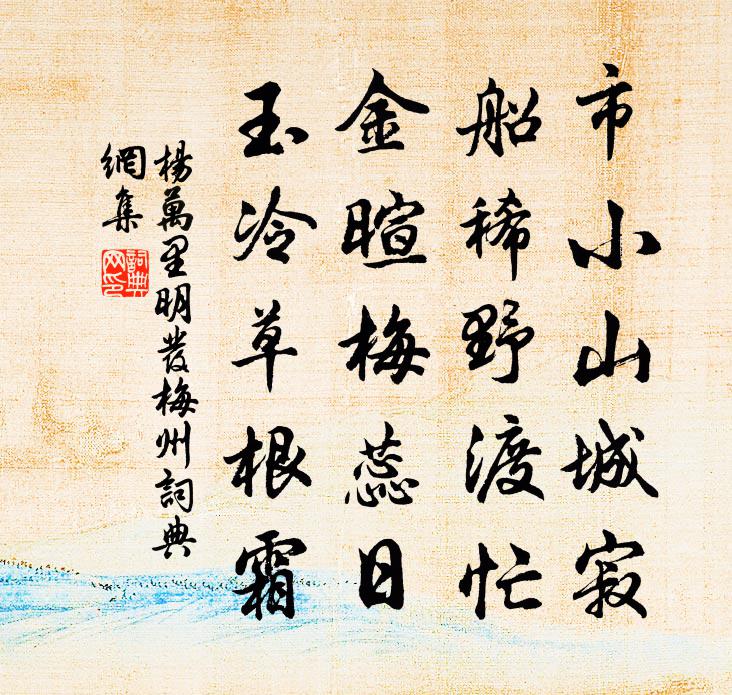 市小山城寂
船稀野渡忙
金暄梅蕊日
玉冷草根霜
楊萬里明發梅州詞典
網集
詞典
网印